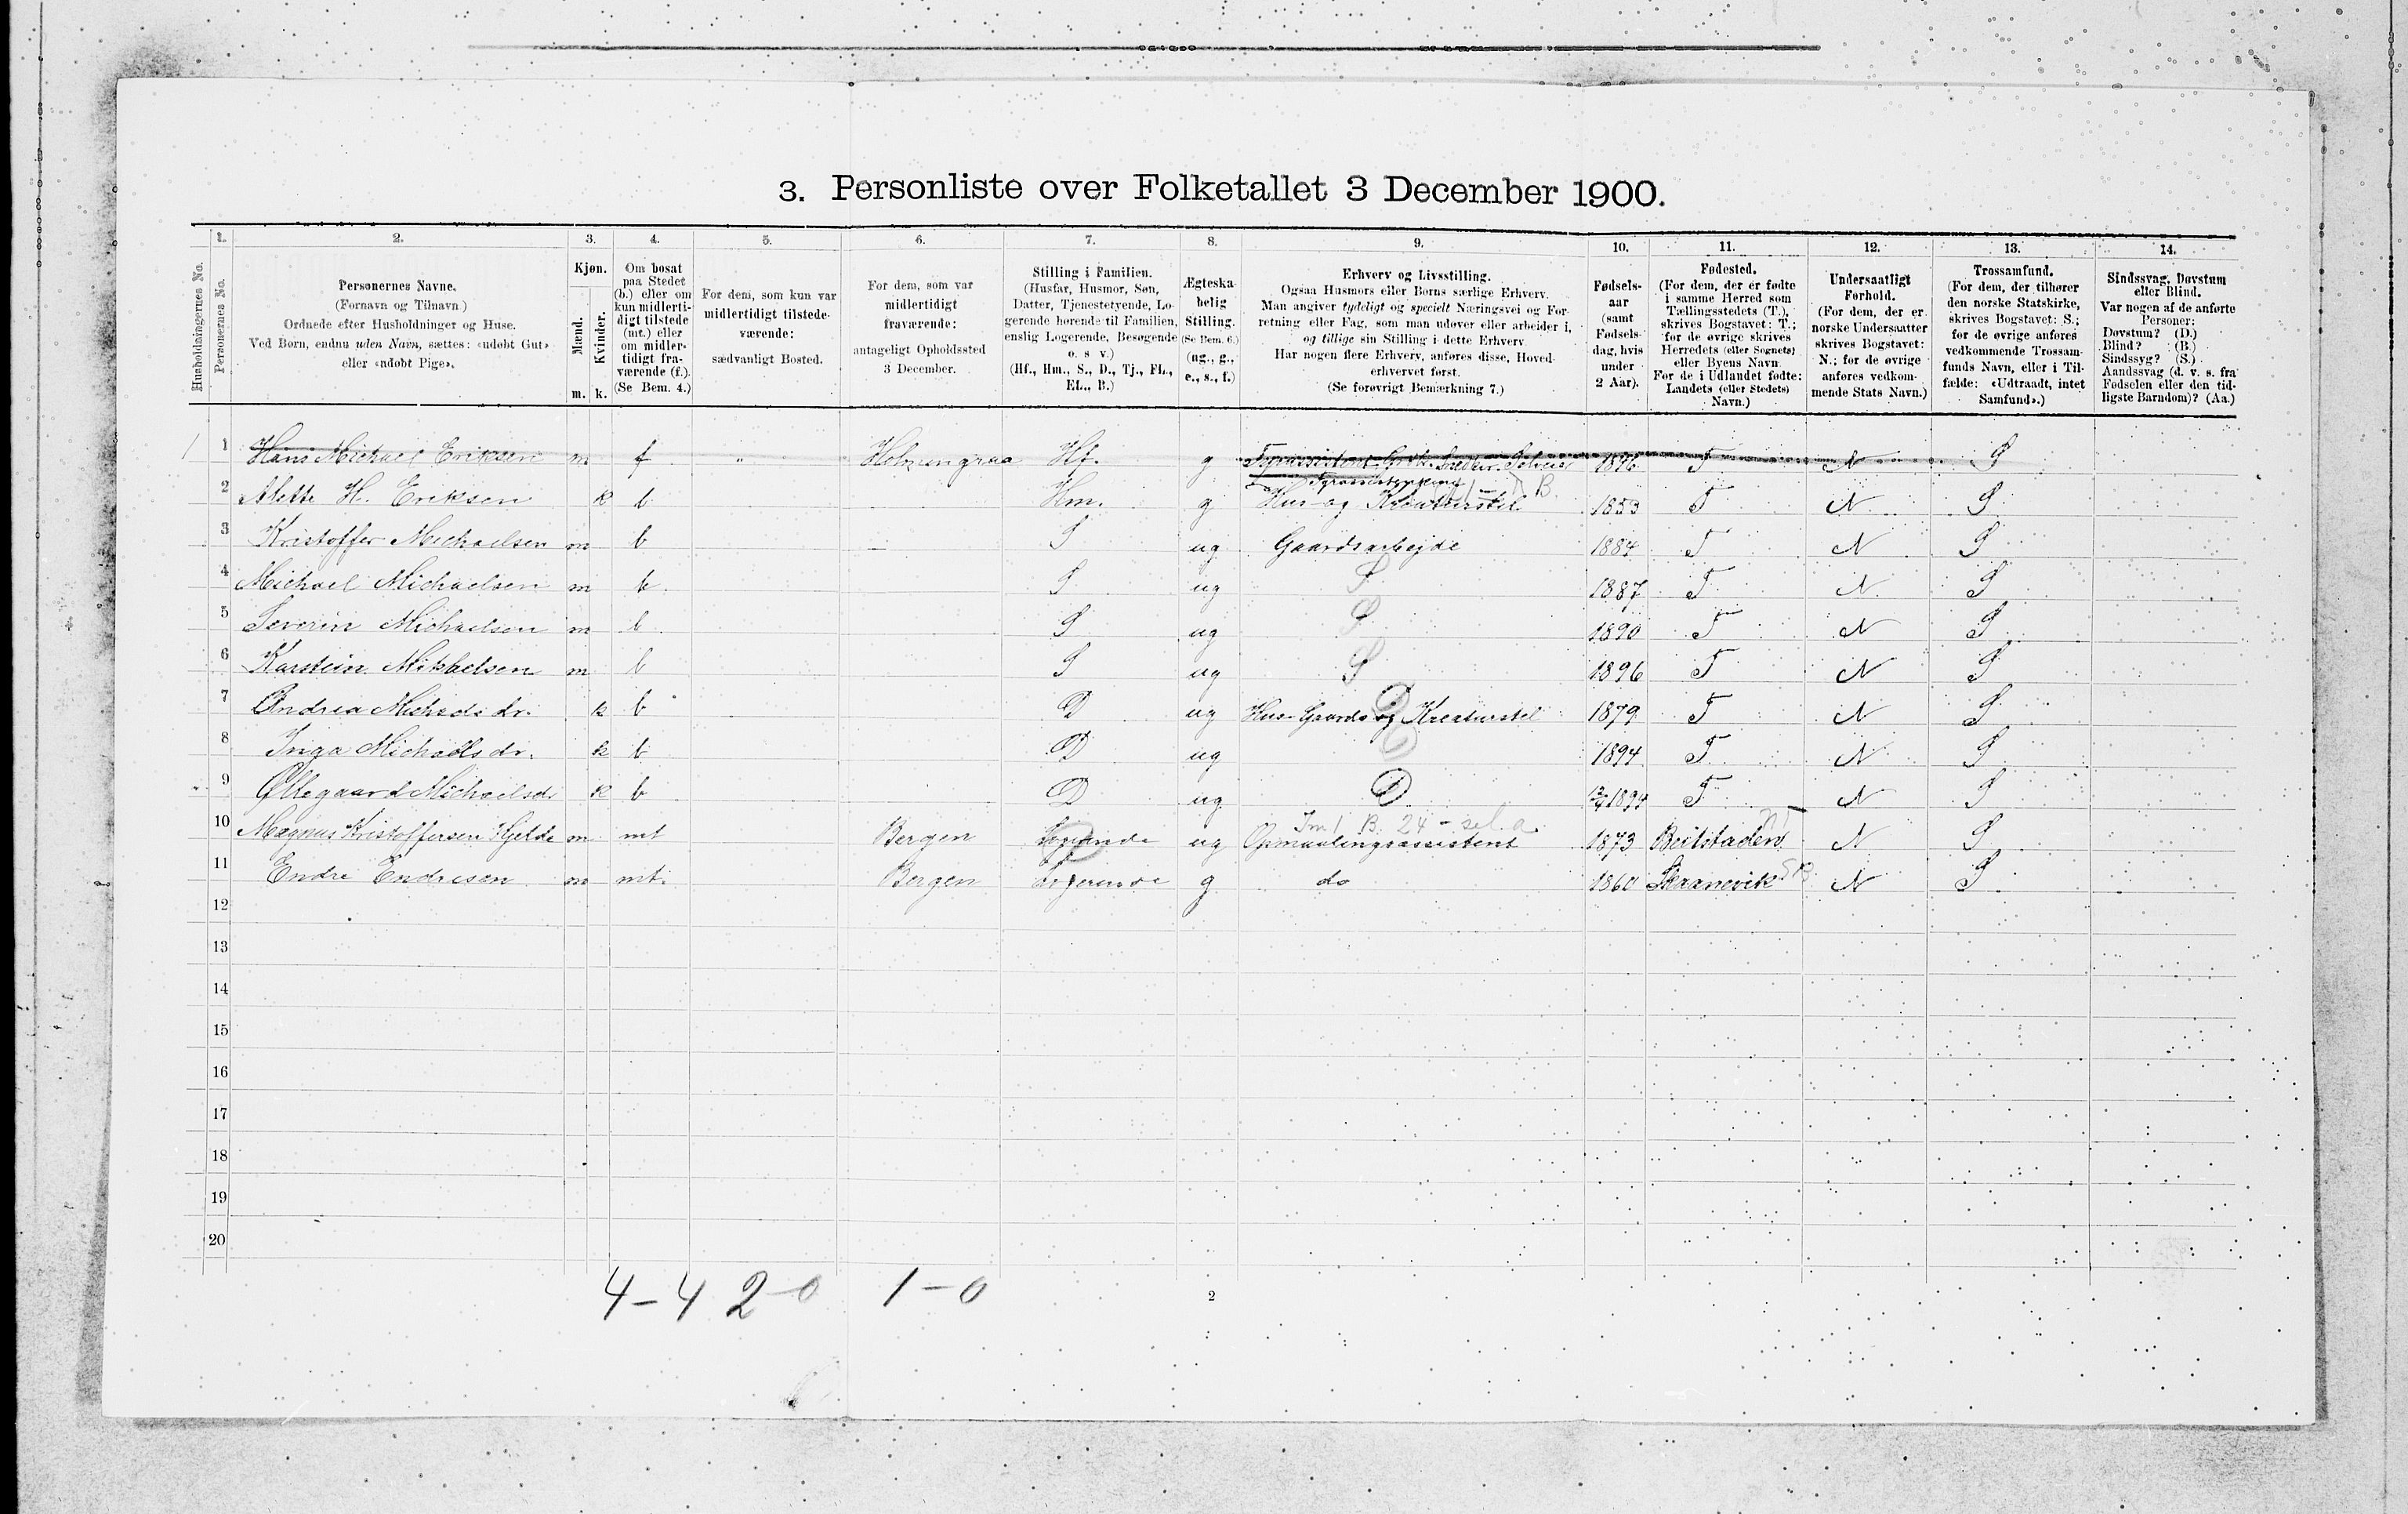 3. Personliste over Folketallet 3 December 1900.
1. 2. 3. 4. 5. 6. 7. 8. 9. 10. 11. 12. 13. 14.
Husholdningernes No.
Personernes No.
Personernes Navne.
(Fornavn og Tilnavn)
Ordnede efter Husholdninger og Huse.
Ved Børn, endnu uden Navn, sættes: «udøbt Gut»
eller «udøbt Pige».
Kjøn.
Mænd.
Kvinder.
m. k.
Om bosat
paa Stedet
(b.) eller om
kun midlerti-
digt tilstede
(mt.) eller
om midler-
tidigt fra-
værende (f.).
(Se Bem. 4.)
For dem, som kun var
midlertidigt tilstede-
værende:
sædvanligt Bosted.
For dem, som var
midlertidigt
fraværende:
antageligt Opholdssted
3 December.
Stilling i Familien.
(Husfar, Husmor, Søn,
Datter, Tjenestetyende, Lo-
gerende hørende til Familien,
enslig Logerende, Besøgende
o. s v.)
(Hf., Hm., S., D., Tj., FL.,
EL., B.)
Ægteska-
belig
Stilling.
(Se Bem. 6.)
(ug., g.,
e., s., f.)
Erhverv og Livsstilling.
Ogsaa Husmors eller Børns særlige Erhverv.
Man angiver tydeligt og specielt Næringsvei og For-
retning eller Fag, som man udøver eller arbeider i,
og tillige sin Stilling i dette Erhverv.
Har nogen flere Erhverv, anføres disse, Hoved-
erhvervet først.
(Se forøvrigt Bemærkning 7.)
Fødsels-
aar
(samt
Fødsels-
dag, hvis
under
2 Aar).
Fødested.
(For dem, der er fødte
i samme Herred som
Tællingsstedets (T.),
skrives Bogstavet: T.;
for de øvrige skrives
Herredets (eller Sognets)
eller Byens Navn.
For de i Udlandet fødte:
Landets (eller Stedets)
Navn.)
Undersaatligt
Forhold.
(For dem, der er
norske Undersaatter
skrives Bogstavet:
N.; for de øvrige
anføres vedkom-
mende Stats Navn.)
Trossamfund.
(For dem, der tilhører
den norske Statskirke,
skrives Bogstavet: S.;
for de øvrige anføres
vedkommende Trossam-
funds Navn, eller i Til-
fælde: «Udtraadt, intet
Samfund».)
Sindssvag, Døvstum
eller Blind.
Var nogen af de anførte
Personer:
Døvstum? (D.)
Blind? (B.)
Sindssyg? (S.)
Aandssvag (d. v. s. fra
Fødselen eller den tid-
ligste Barndom)? (Aa.)
1 Hans Michael Eriksen m f " Holmengraa Hf. g T N S
2 Alette H. Eriksen k b Hm. g Hus og Kreaturstel 1853 T N S
3 Kristoffer Michaelsen m b S ug Gaardsarbejde 1884 T N S
4 Michael Michaelsen m b S ug S 1887 T N S
5 Severin Michaelsen m b S ug S 1890 T N S
6 Karstein Mikkelsen m b S ug S 1896 T N S
7 Andrea Michaelsdr. k b D ug Hus Gaards og Kreaturstel 1879 T N S
8 Inga Michaelsdr. k b D ug D 1894 T N S
9 Øllegaard Michaelsdr k b D ug D T N S
10 Magnus Kristoffersen Hjelde m mt Bergen Logerende ug Opmaalingsassistent 1873 Beitstaden NT N S
11 Endre Endresen m mt. Bergen Logerende g do 1860 Skaanevik SB N S
12
13
14
15
16
17
18
19
20
4-4 2-0 1-0
2